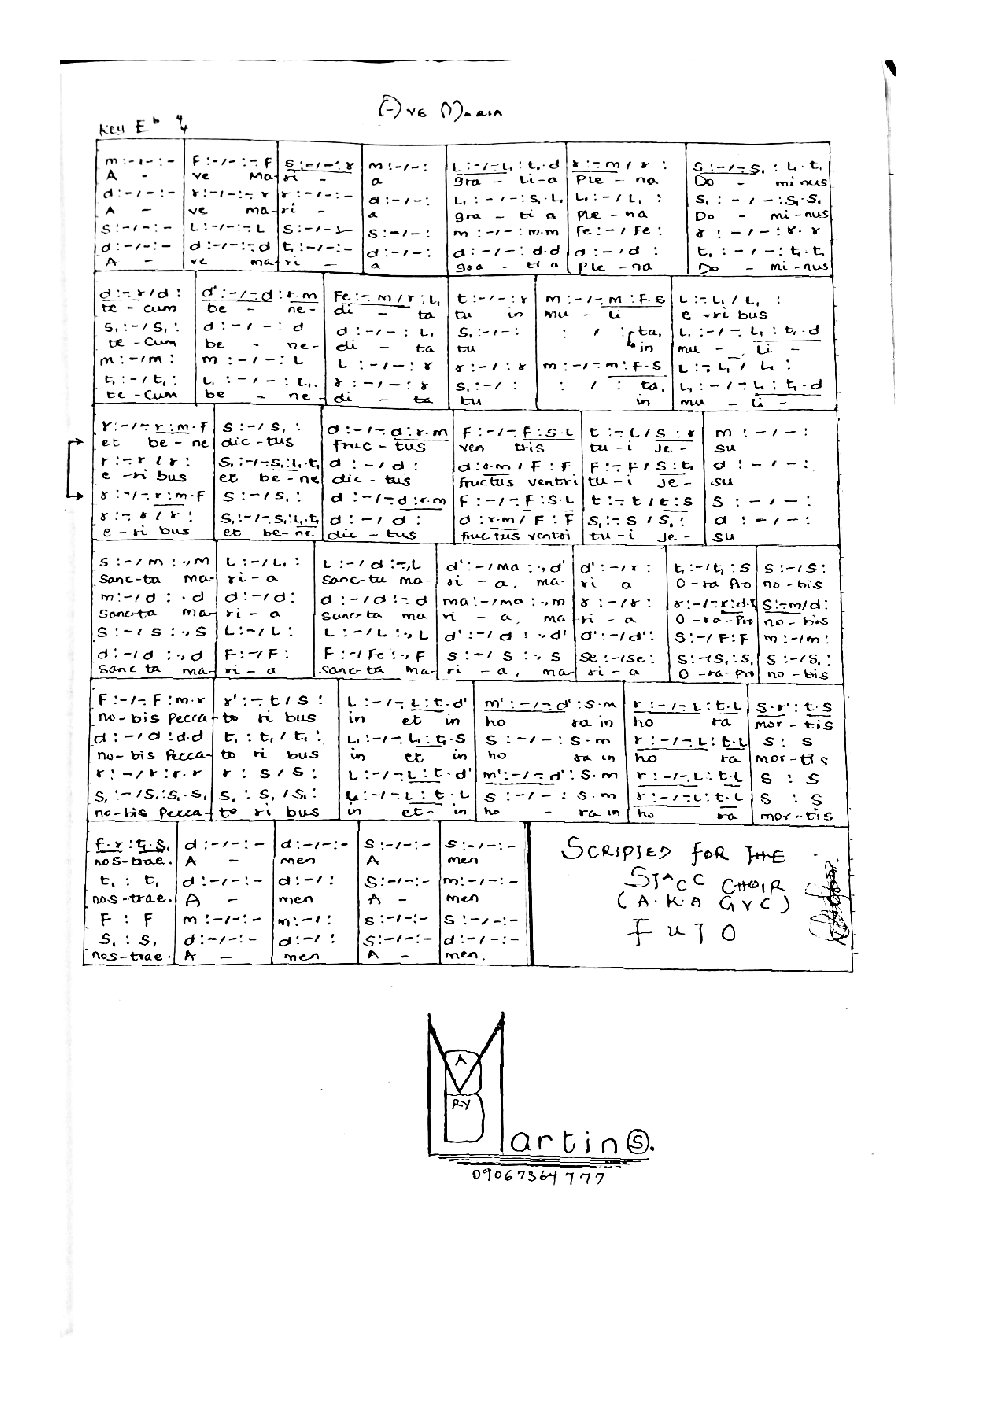 Ave Maria
Key Eb 4/4
m :-/-:- F :-/-:- F S:-/-:r m :-/-: L:-/-L, :t,.d r :- m / r : S :-/-S, : L,.t,
A - ve Ma ri - a gra - ti-a Ple - na Do - mi nus
d :-/-:- r :-/-:- r r :-/-:- d :-/-: L, :-/-:S,.L, L, :-/L, : S, :-/-:S,.S,
A - ve ma ri - a gra - ti a Ple - na Do - mi-nus
S :-/-:- L :-/-:- L S :-/-:- S :-/-: m :-/-:m.m Fe :-/Fe : r :-/-:r.r
d :-/-:- d :-/-:- d t, :-/-:- d :-/-: d :-/-:d.d d :-/d : t, :-/-:t,.t,
A - ve ma ri - a gra - ti a Ple - na Do - mi-nus
d :- r/d : d' :-/-d :r.m Fe :- m/r :L, t :-/-:r m :-/-m :F.S L :-L,/L, :
te - cum be - ne- di - ta tu in mu - li e - ri bus
S, :-/S, : d :-/-:d d :-/-:L, S, :-/-: : / :ta, L, :-/-L, :t,.d
te - Cum be - ne- di - ta tu in mu - li -
m :-/m : m :-/-:L L :-/-:r r :-/-: m :-/-m :F.S L :-L,/L, :
t, :-/t, : L, :-/-:L, r :-/-:r S, :-/-: : / :ta, L, :-/-L :t,.d
te - Cum be - ne- di - ta tu in mu - li -
r :-/-r :m.F S :-/S, : d :-/-d :r.m F :-/-F :S.L t :-L/S.r m :-/-:
et be - ne dic - tus fruc - tus ven tris tu - i Je - su
r :-r/r : S, :-/-S, :L,.t, d :-/d : d :r.m/F :F F :-F/S :t, d :-/-:
e - ri bus et be-ne dic - tus fructus ventri tu - i Je - su
r :-/-r :m.F S :-/S, : d :-/-d :r.m F :-/-F :S.L t :-t/t :S S :-/-:
r :-r/r : S, :-/-S, :L,.t, d :-/d : d :r.m/F :F S, :-S/S, : d :-/-:
e - ri bus et be-ne dic - tus fructus ventri tu - i Je - su
S :-/m :.,m L :-/L, : L :-/d :-,L d' :-/ma :.,d' d' :-/r : t, :-/t, :S S :-/S :
Sanc-ta ma- ri - a Sanc-tu ma ri - a, ma- ri a O - ra Pro no-bis
m :-/d :.d d :-/d : d :-/d :-d ma :-/ma :.,m r :-/r : r :-/-r :d.t, S :-m/d :
Sanc-ta ma- ri - a Sanc-ta ma ri - a, ma ri - a O - ra Pro no - bis
S :-/S :.,S L :-/L : L :-/L :.,L d' :-/d :.,d' d' :-/d' : S :-/F :F m :-/m :
d :-/d :.,d F :-/F : F :-/Fe :.,F S :-/S :.,S Se :-/Se : S :-/S, :S, S :-/S, :
Sanc ta ma- ri - a Sanc-ta ma- ri - a, ma- ri - a O - ra Pro no - bis
F :-/-F :m.r r' :-t/S : L :-/-L :t.d' m' :-/-d' :S.m r :-/-L :t.L S.r' :t.S
no-bis Pecca- to ri bus in et in ho ra in ho ra mor - tis
d :-/d :d.d t, :t,/t, : L :-/-L :t.S S :-/-:S.m r :-/-L :t.L S : S
no-bis Pecca- to ri bus in et in ho ra in ho ra mor-tis
r :-/r :r.r r : S/S : L :-/-L :t.d' m' :-/-d' :S.m r :-/-L :t.L S : S
S, :-/S, :S,.S, S, : S,/S, : L, :-/-L :t.L S :-/-:S.m r :-/-L :t.L S : S
no-bis Pecca- to ri bus in et - in ho - ra in ho ra mor-tis
F.r :t,.S, d :-/-:- d :-/-:- S :-/-:- S :-/-:-
nos-trae. A - men A men
t, : t, d :-/-:- d :-/-: S :-/-:- m :-/-:-
nos-trae. A - men A - men
F : F m :-/-:- m :-/-: S :-/-:- S :-/-:-
S, : S, d :-/-:- d :-/-: S :-/-:- d :-/-:-
nos-trae. A - men A - men.
SCRIPTED FOR THE
STACC CHOIR
(A.K.A GVC)
FUTO
MARY
Martin S.
09067364777